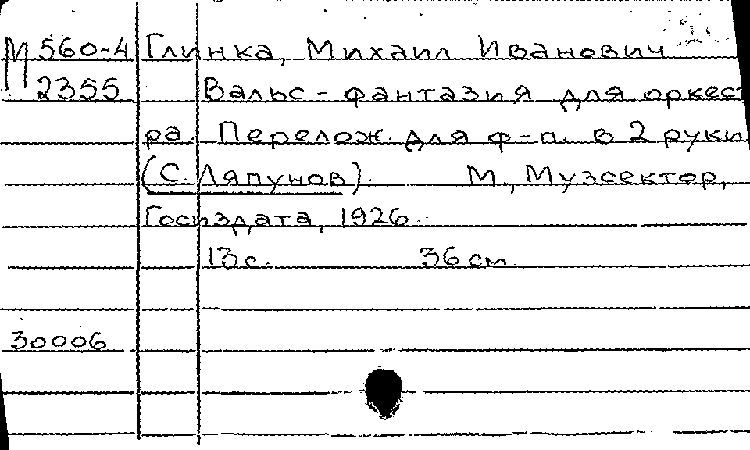 М 560-4 Глинка, Михаил Иванович
2355 Вальс-фантазия для оркест
ра. Перелож. для ф-п. в 2 руки
(С. Ляпунов). М., Музсектор,
Госиздата, 1926.
13 с. 36 см.
30006